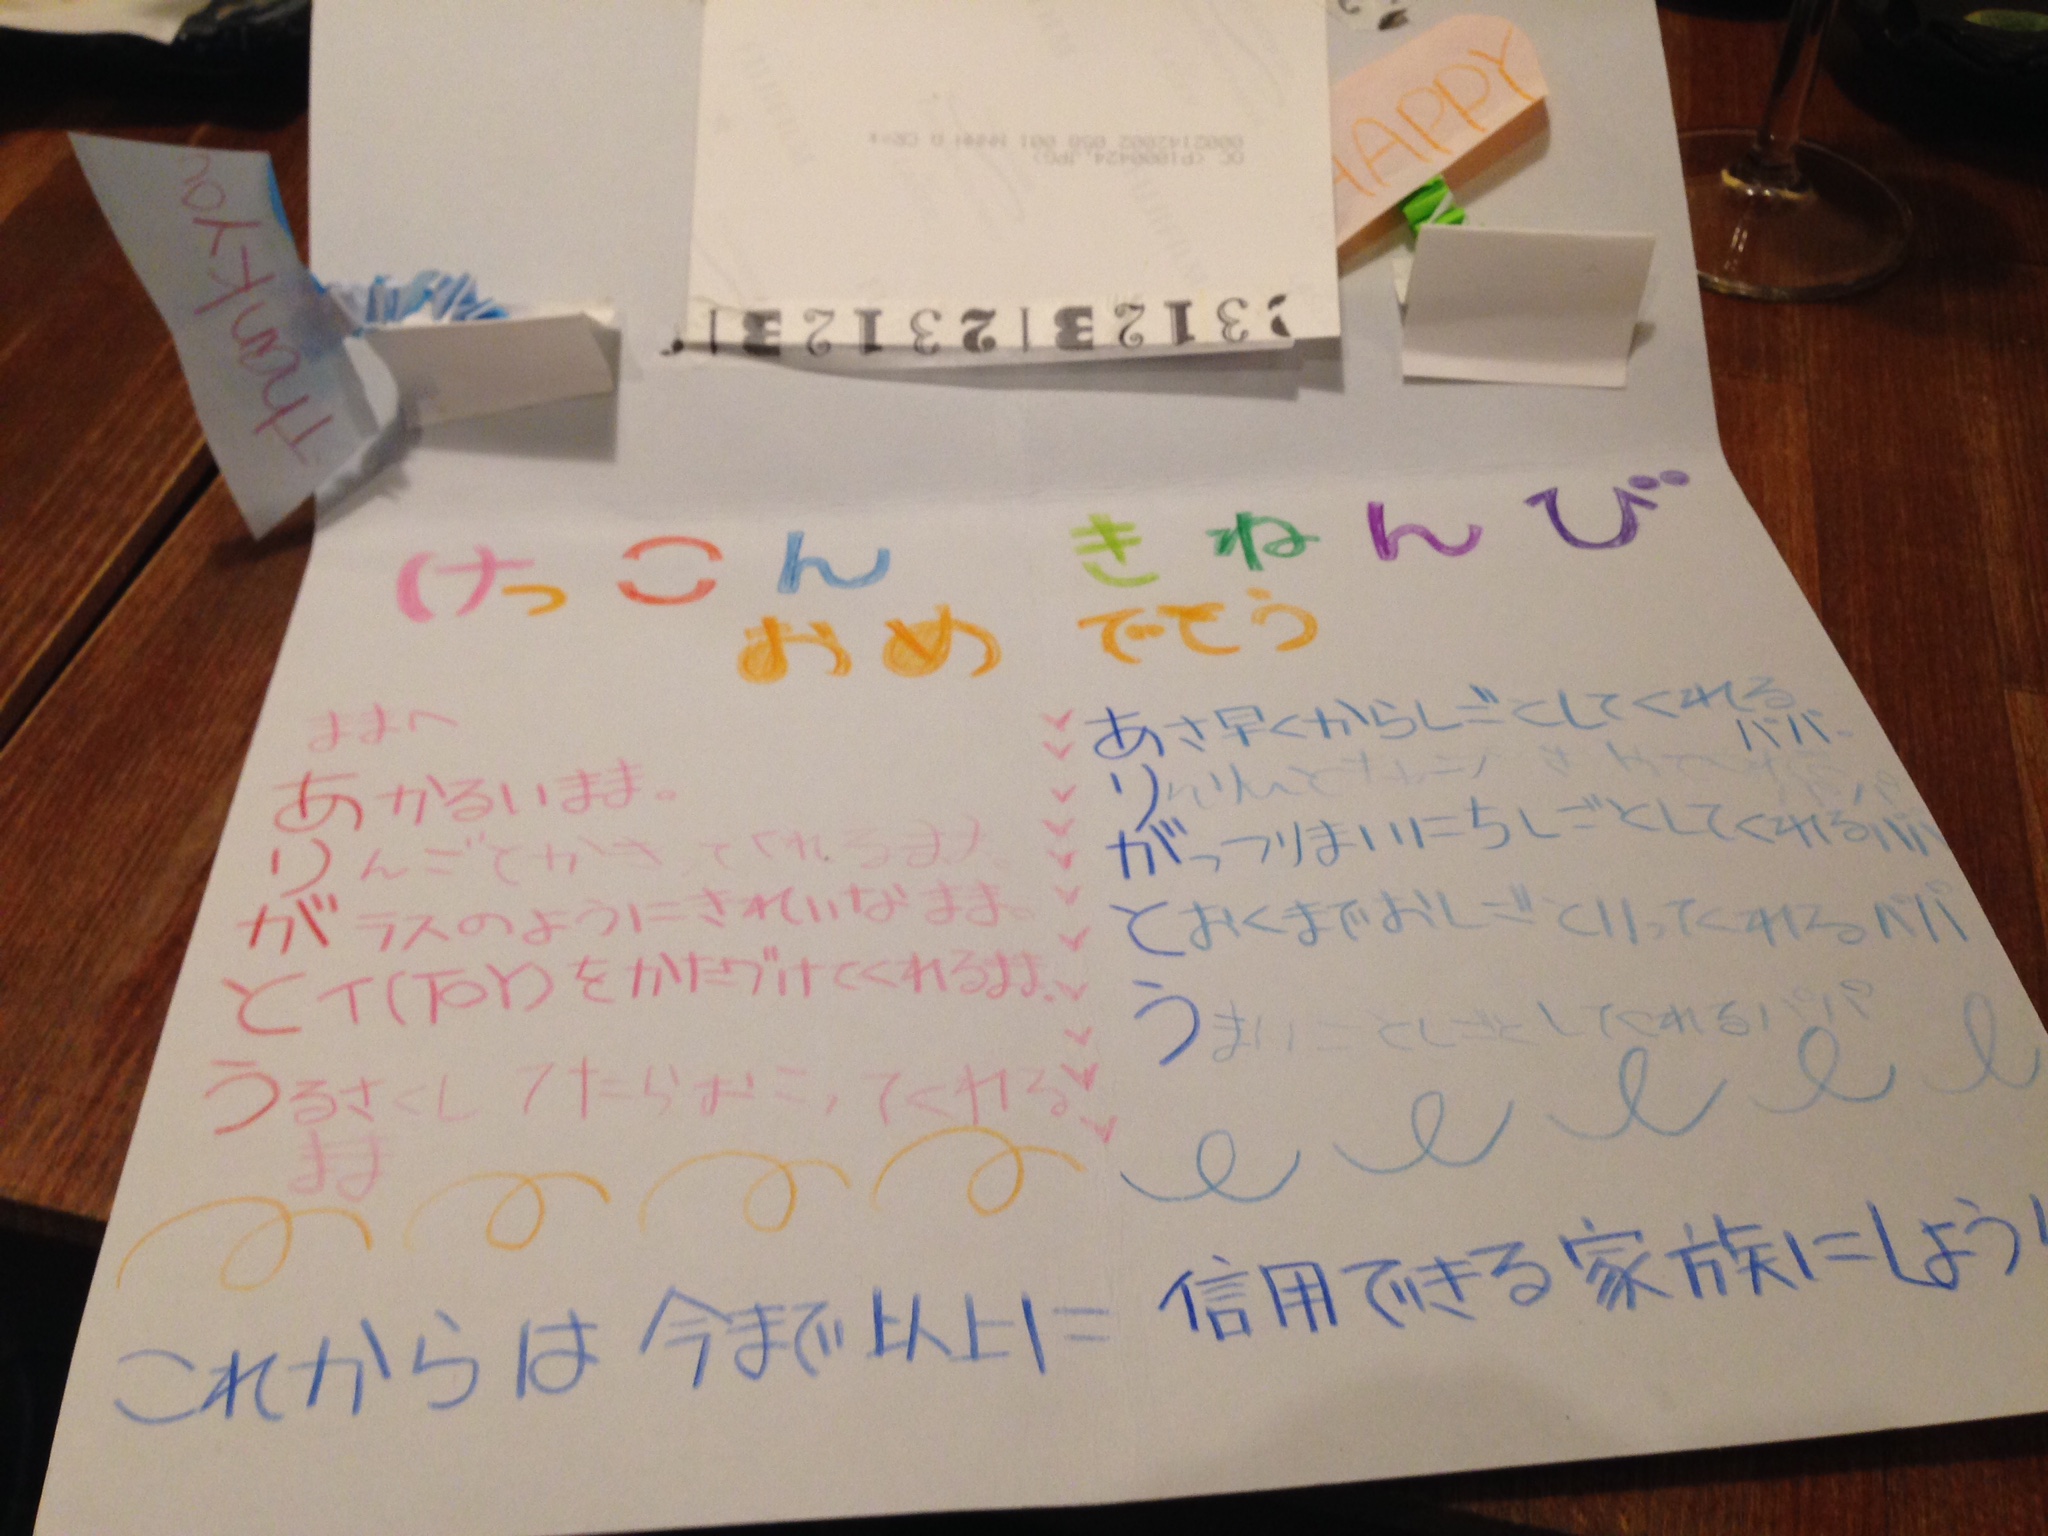 HAPPY
Thank you
31231231231
けっこん きねんび
おめ でとう
ままへ
あかるいまま。
りんごてかさってくれるまま
がラスのようにきれいなまま。
とイ(TOY)をかたづけてくれるまま。
うるさくしてたらおこってくれる
まま
あさ早くからしごとしてくれる
パパ
り パパ
がっつりまいにちしごとしてくれるパパ
とおくまでおしごといってくれるパパ
うまいことしごとしてくれるパパ
これからは今まで以上に 信用できる家族にしよう!